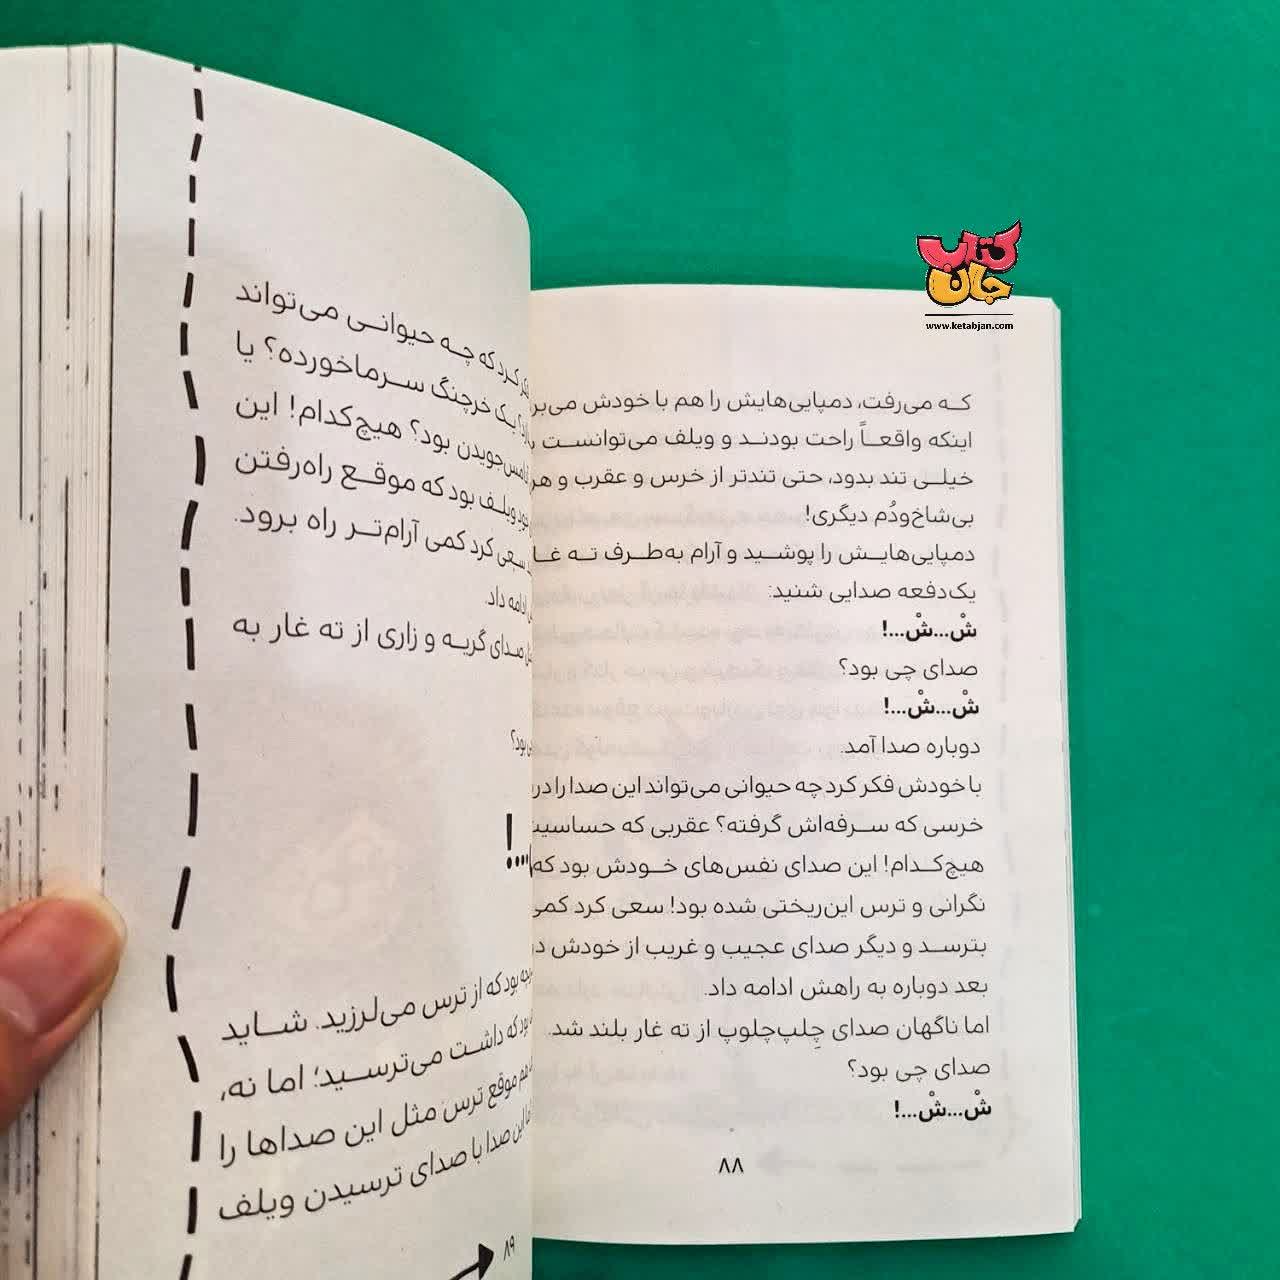 کتاب
جان
www.ketabjan.com
که می‌رفت، دمپایی‌هایش را هم با خودش
اینکه واقعاً راحت بودند و ویلف می‌توانست
خیلی تند بدود، حتی تندتر از خرس و عقرب و هر
بی‌شاخ‌ودُم دیگری!
دمپایی‌هایش را پوشید و آرام به‌طرف ته
یک‌دفعه صدایی شنید:
شْ...شْ...!
صدای چی بود؟
شْ...شْ...!
دوباره صدا آمد.
با خودش فکر کرد چه حیوانی می‌تواند این صدا را
خرسی که سرفه‌اش گرفته؟ عقربی که
هیچ‌کدام! این صدای نفس‌های خودش بود که
نگرانی و ترس این‌ریختی شده بود! سعی کرد کمی
بترسد و دیگر صدای عجیب و غریب از خودش
بعد دوباره به راهش ادامه داد.
اما ناگهان صدای چِلپ‌چلوپ از ته غار بلند شد.
صدای چی بود؟
شْ...شْ...!
۸۸
کرد که چه حیوانی می‌تواند
یک خرچنگ سرماخورده؟ یا
جویدن بود؟ هیچ‌کدام! این
خود ویلف بود که موقع راه‌رفتن
سعی کرد کمی آرام‌تر راه برود.
ادامه داد.
صدای گریه و زاری از ته غار به
بود؟
...!
بود که از ترس می‌لرزید. شاید
بود که داشت می‌ترسید؛ اما نه،
هم موقع ترس مثل این صداها را
این صدا با صدای ترسیدن ویلف
۸۹